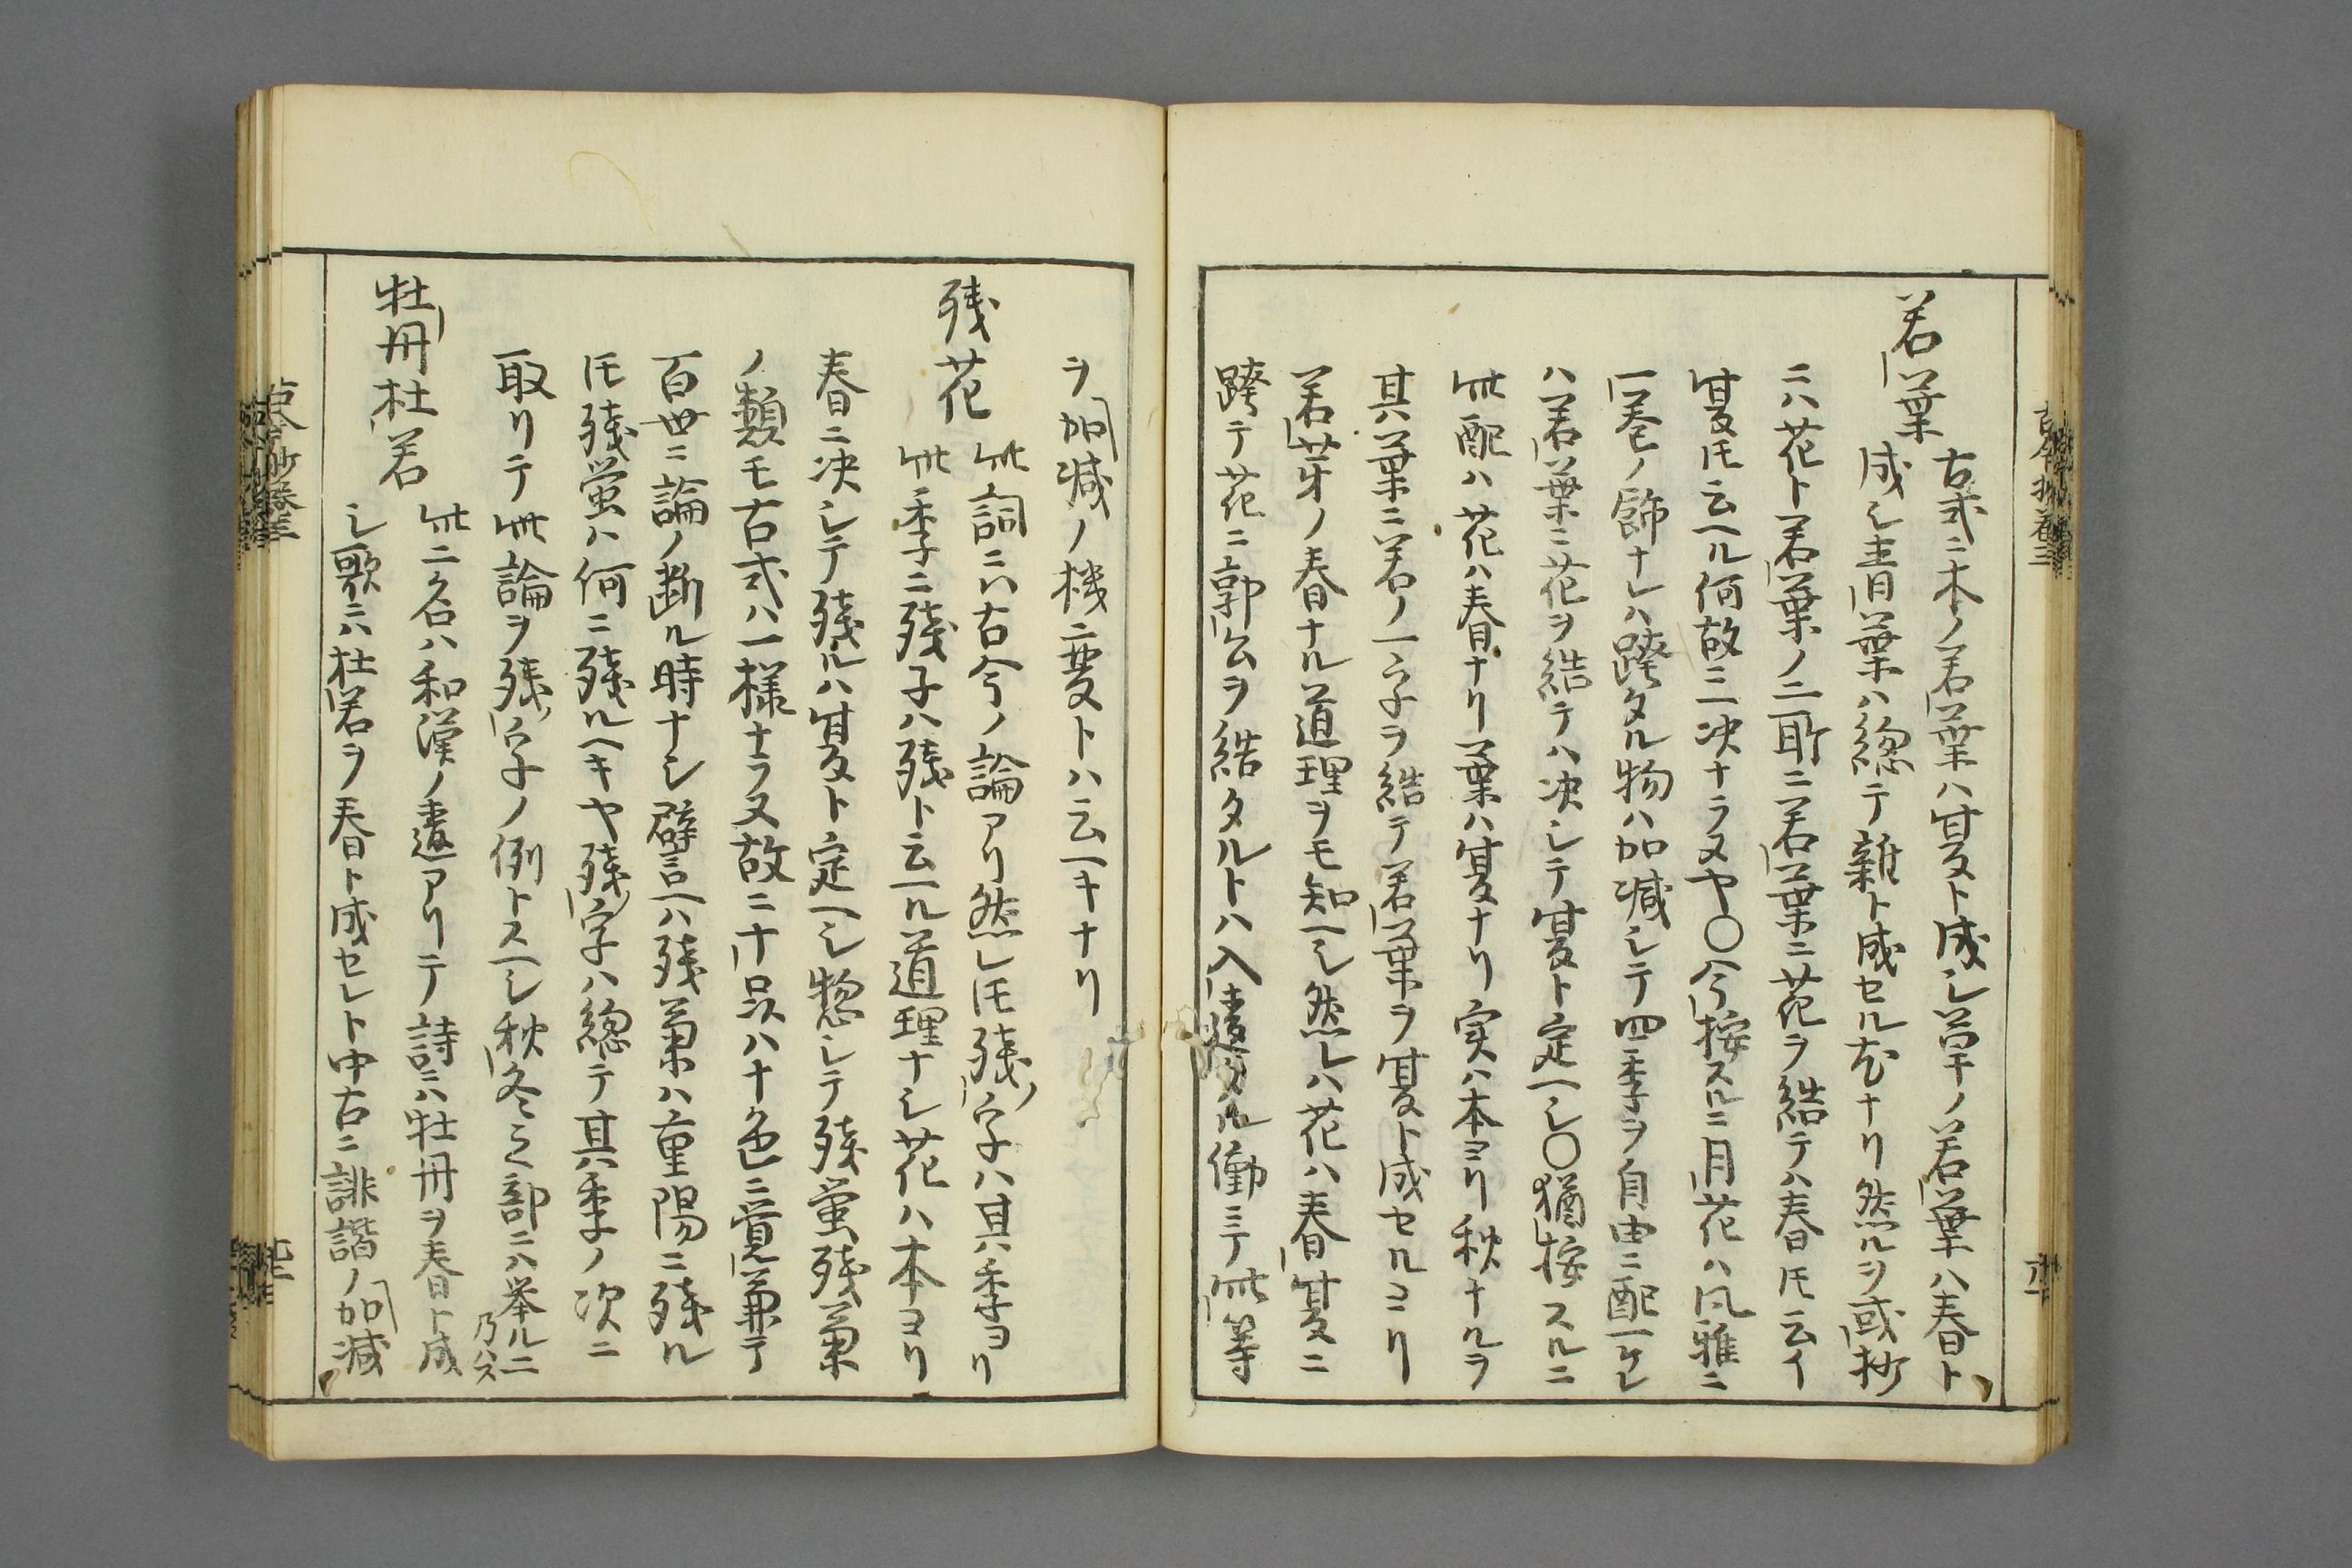 若葉
古式ニ木ノ若葉ハ夏ト成シ草ノ若葉ハ春ト
成シ青葉ハ総テ雑ト成セル尤ナリ然ルヲ或抄
ニハ花ト若葉ノ二取ニ若葉ニ花ヲ結テハ春𪜈云イ
夏𪜈云ヘル何故ニ一決ナラヌヤ〇今按スルニ月花ハ風雅ニ
一巻ノ飾ナレハ跨タル物ハ加減シテ四季ヲ自由ニ配ヘケレ
ハ若葉ニ花ヲ結テハ决シテ夏ト定ヘシ〇猶按スルニ
此配ハ花ハ春ナリ葉ハ夏ナリ実ハ本ヨリ秋ナルヲ
其葉ニ若ノ一字ヲ結テ若葉ヲ夏ト成セルヨリ
若芽ノ春ナル道理ヲモ知ヘシ然レハ花ハ春夏ニ
跨テ花ニ郭公ヲ結タルトハ入違タル働ニテ此等
ヲ加减ノ機変トハ云ヘキナリ
残花
此詞ニハ古今ノ論アリ然レ𪜈残ノ字ハ其季ヨリ
此季ニ残子ハ残ト云ヘル道理ナシ花ハ本ヨリ
春ニ决シテ残ルハ夏ト定ヘシ惣シテ残蛍残菊
ノ類モ古式ハ一様ナラヌ故ニ十品ハ十色ニ覚兼テ
百世ニ論ノ断ル時ナシ譬ヘハ残菊ハ重陽ニ残ル
𪜈残蛍ハ何ニ残ルヘキヤ残ノ字ハ総テ其季ノ次ニ
取リテ此論ヲ残ノ字ノ例トスヘシ秋冬之部ニハ挙ルニ
乃ハス
牡丹杜若
此二名ハ和漢ノ違アリテ詩ニハ牡丹ヲ春ト成
シ歌ニハ杜若ヲ春ト成セレト中古ニ誹諧ノ加减
古今抄巻三